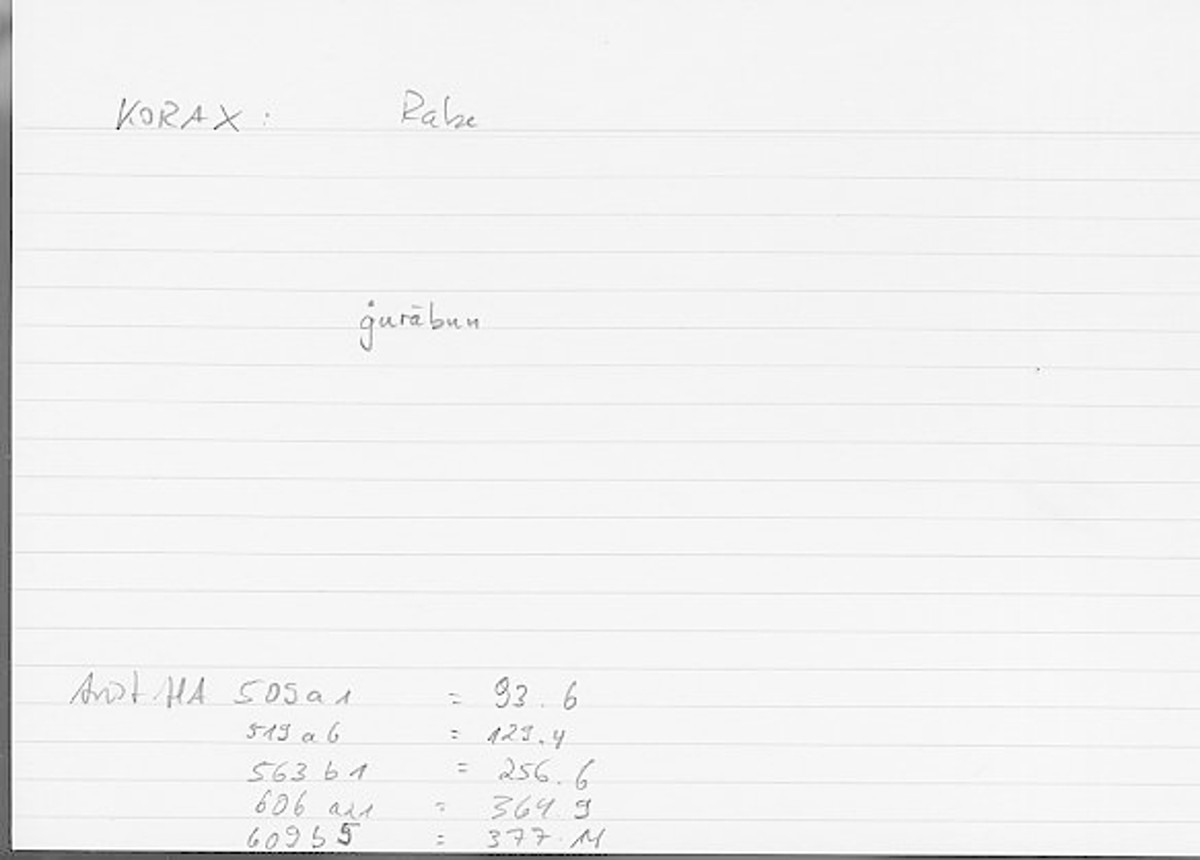 KORAX : Rabe
ġurābun
Arist. HA 509 a 1 = 93.6
519 a 6 = 129.4
563 b 1 = 256.6
606 a 21 = 364.9
609 b 5 = 377.11